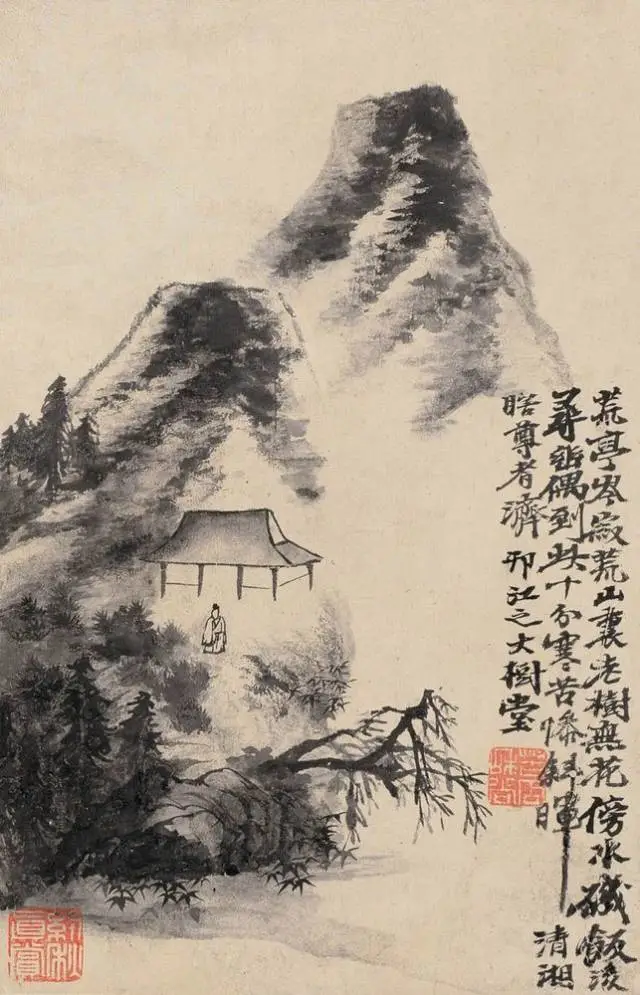 荒亭岑寂荒山裏老樹無花傍水磯飯後
尋詩偶到此十分寒苦惨斜暉 清湘
瞎尊者濟 邗江之大樹堂